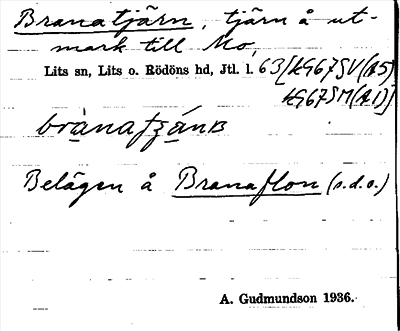 Branatjärn, tjärn å ut-
mark till Mo,
Lits sn, Lits o. Rödöns hd, Jtl. l. 63 [19G7SV(A5)
19G7SM(A1)]
Belägen å Branaflon (s.d.o.)
A. Gudmundson 1936.